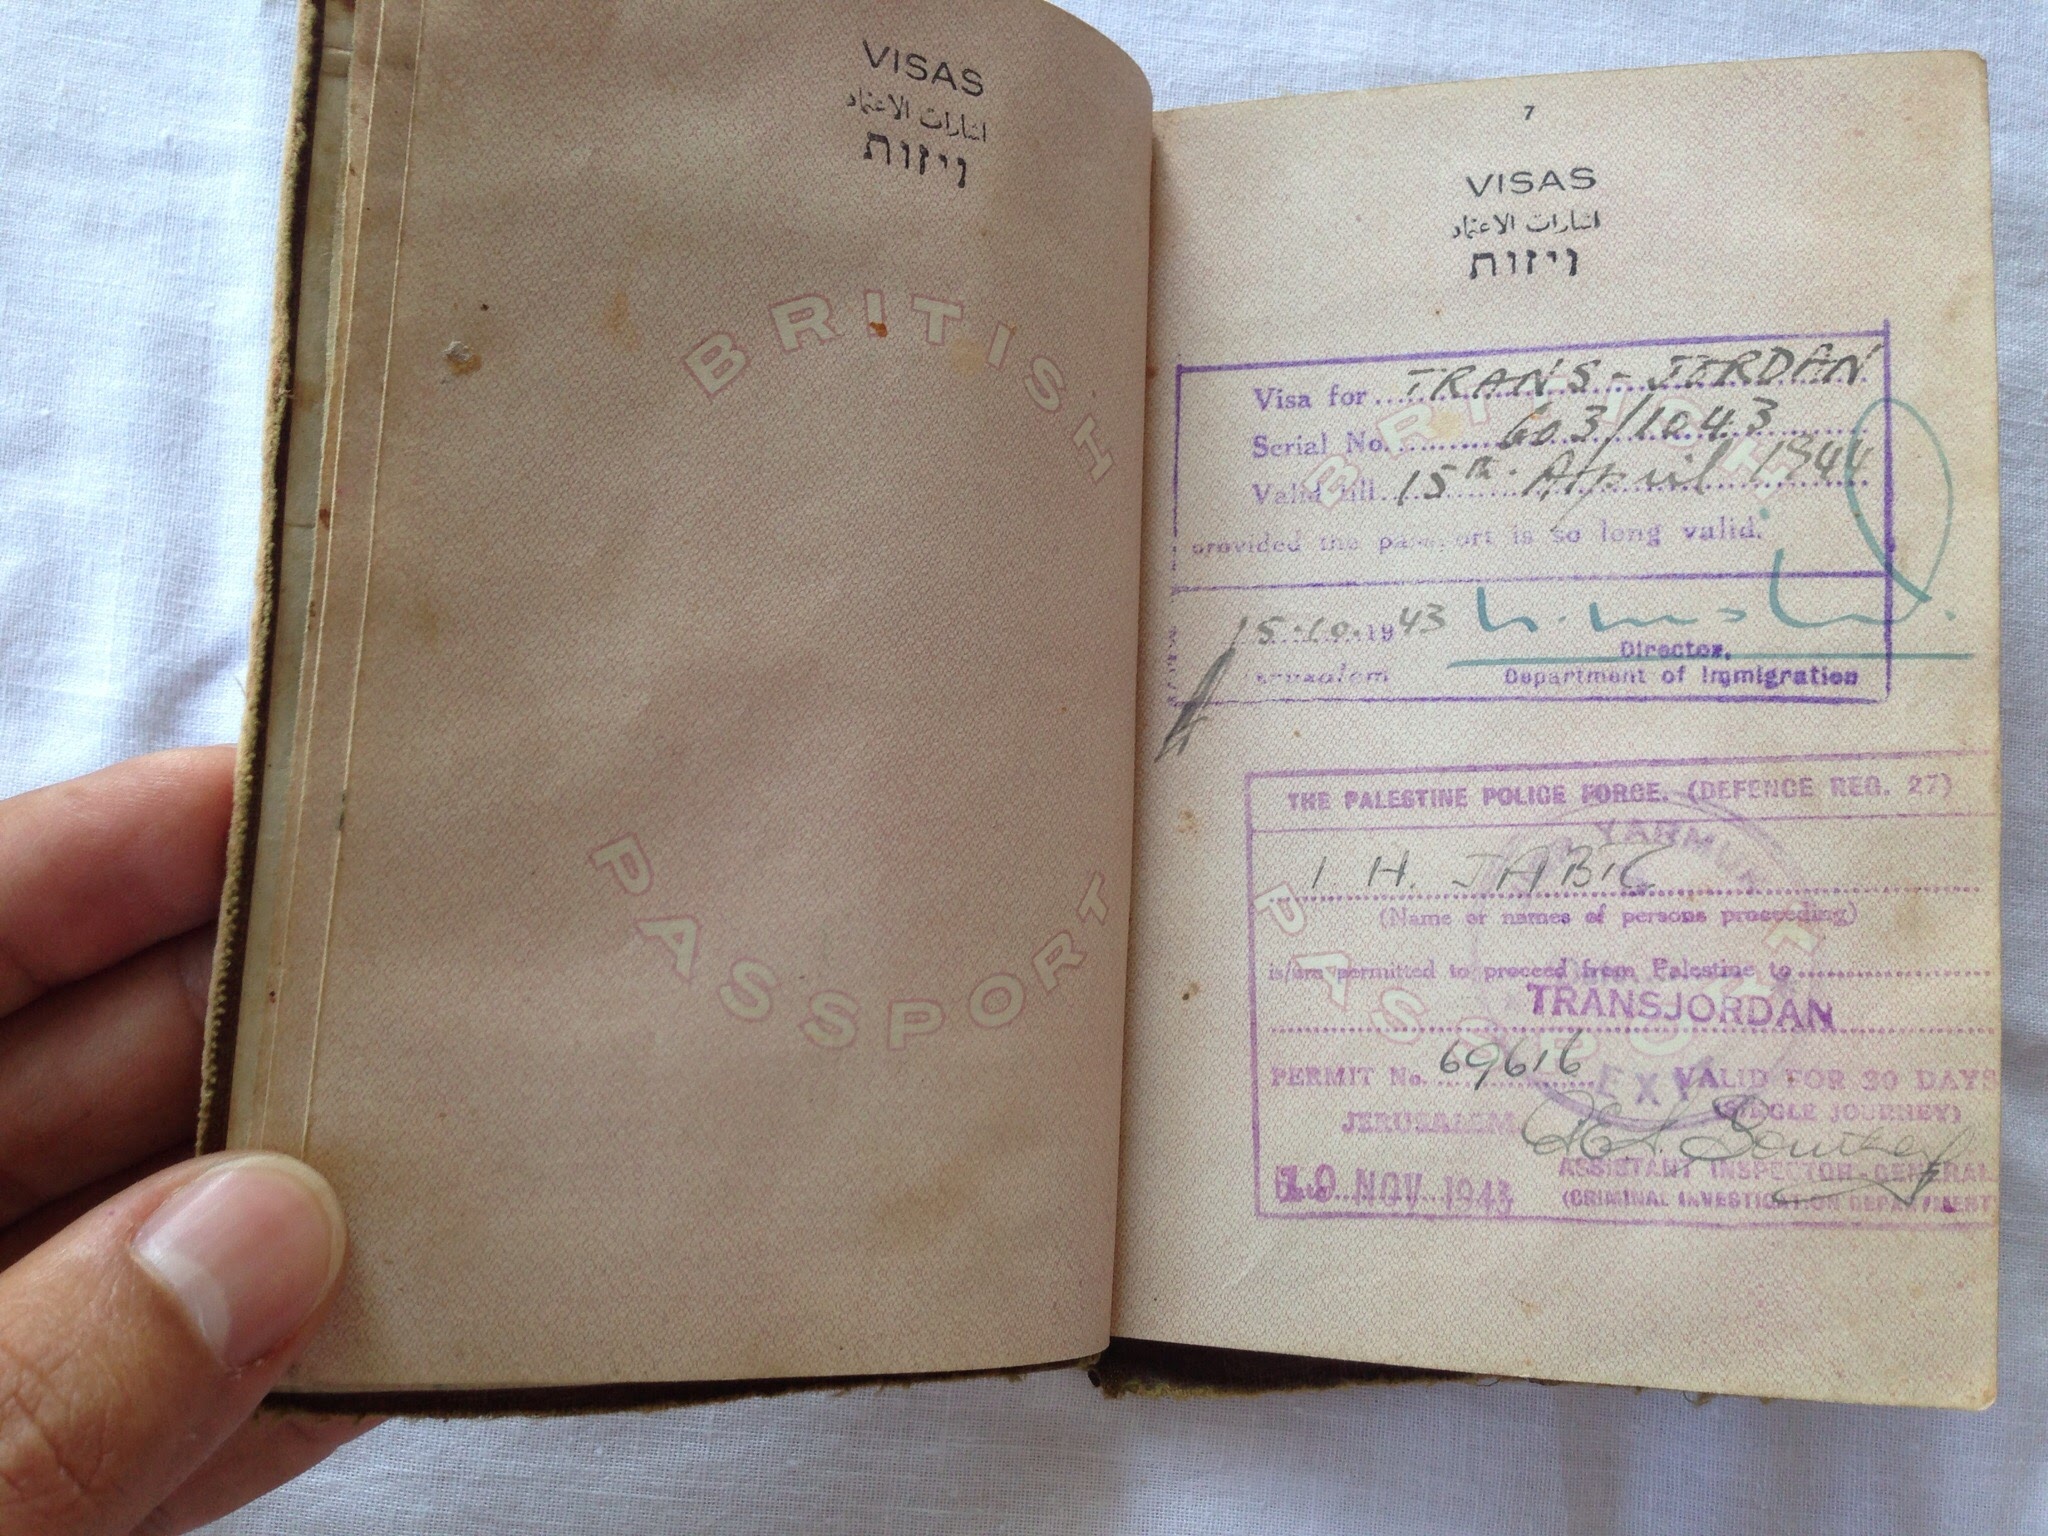 VISAS
اشارات الاعتماد
ויזות
BRITISH
PASSPORT
7
VISAS
اشارات الاعتماد
ויזות
Visa for TRANS-JORDAN
Serial No. 603/1043
Valid till 15th April 1944
provided the passport is so long valid.
15.10.1943
Jerusalem
Director,
Department of Immigration
BRITISH
PASSPORT
THE PALESTINE POLICE FORCE. (DEFENCE REG. 27)
I H. JABR
(Name or names of persons proceeding)
is/are permitted to proceed from Palestine to
TRANSJORDAN
PERMIT No. 69616 VALID FOR 30 DAYS
(SINGLE JOURNEY)
JERUSALEM
ASSISTANT INSPECTOR-GENERAL
Date 10 NOV 1943
(CRIMINAL INVESTIGATION DEPARTMENT)
EXIT